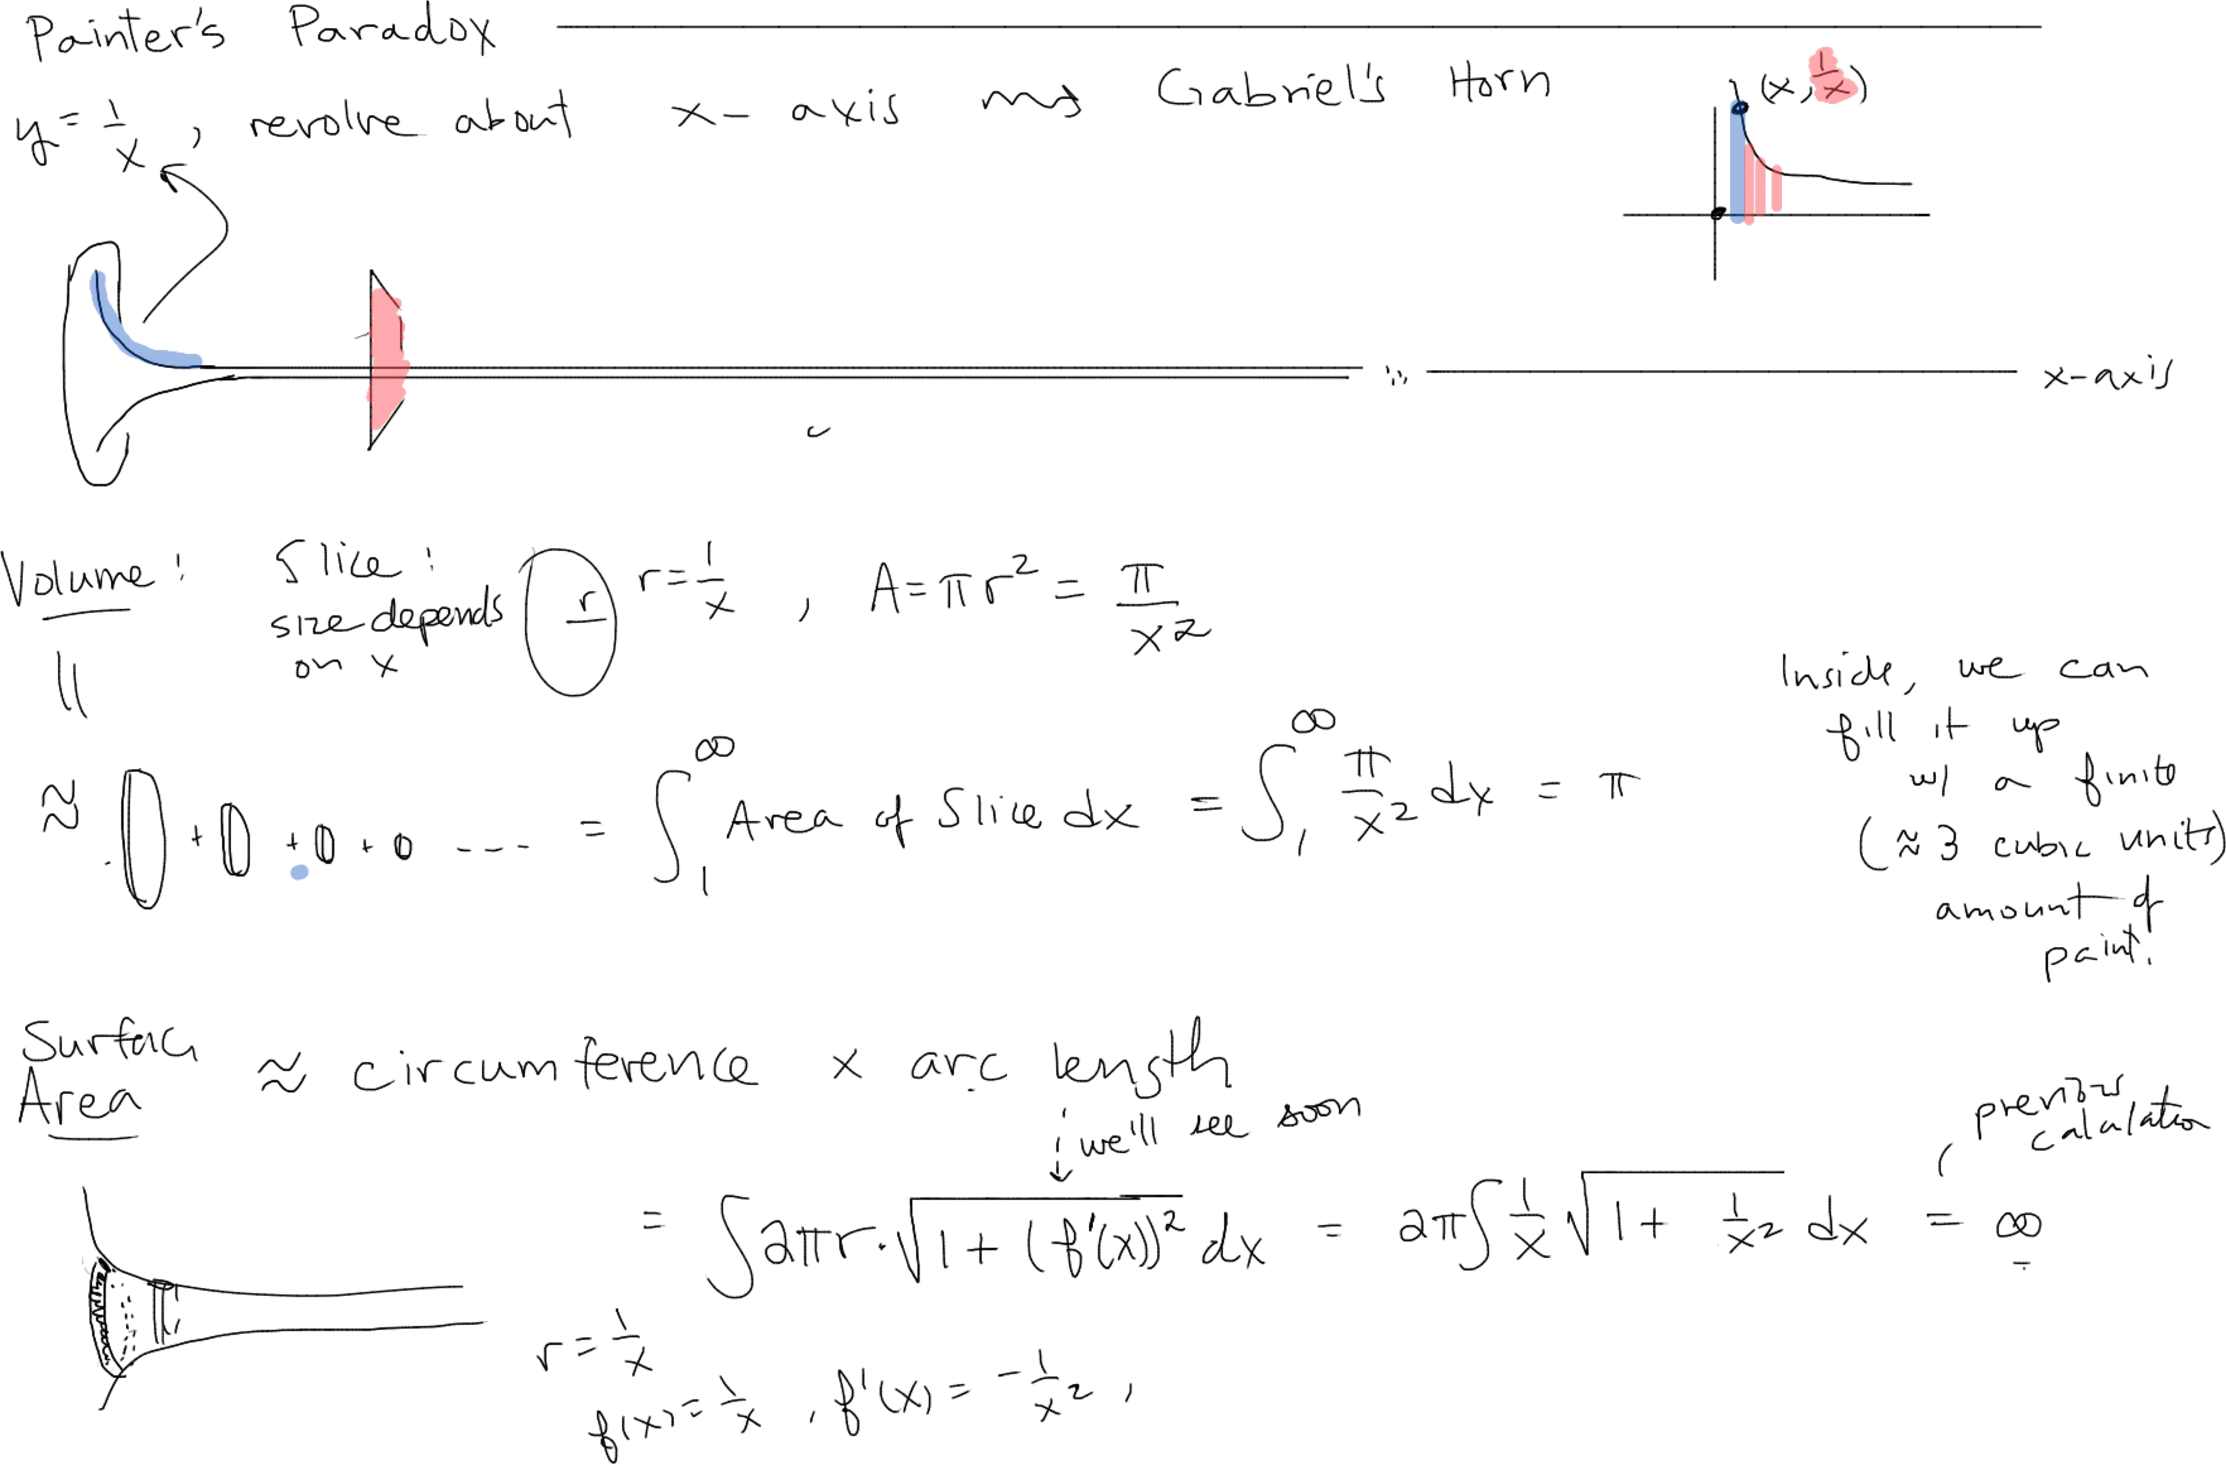 Painter's Paradox
y = 1/x , revolve about x-axis ⇝ Gabriel's Horn
(x, 1/x)
x-axis
Volume: Slice: size depends on x
r
r = 1/x , A = πr² = π/x²
≈ 0 + 0 + 0 + 0 --- = ∫₁^∞ Area of Slice dx = ∫₁^∞ π/x² dx = π
Inside, we can
fill it up
w/ a finite
(≈ 3 cubic units)
amount of
paint.
Surface Area ≈ circumference x arc length
we'll see soon
previous calculation
= ∫ 2πr · √(1 + (f'(x))²) dx = 2π ∫ 1/x √(1 + 1/x²) dx = ∞
r = 1/x
f(x) = 1/x , f'(x) = -1/x² ,